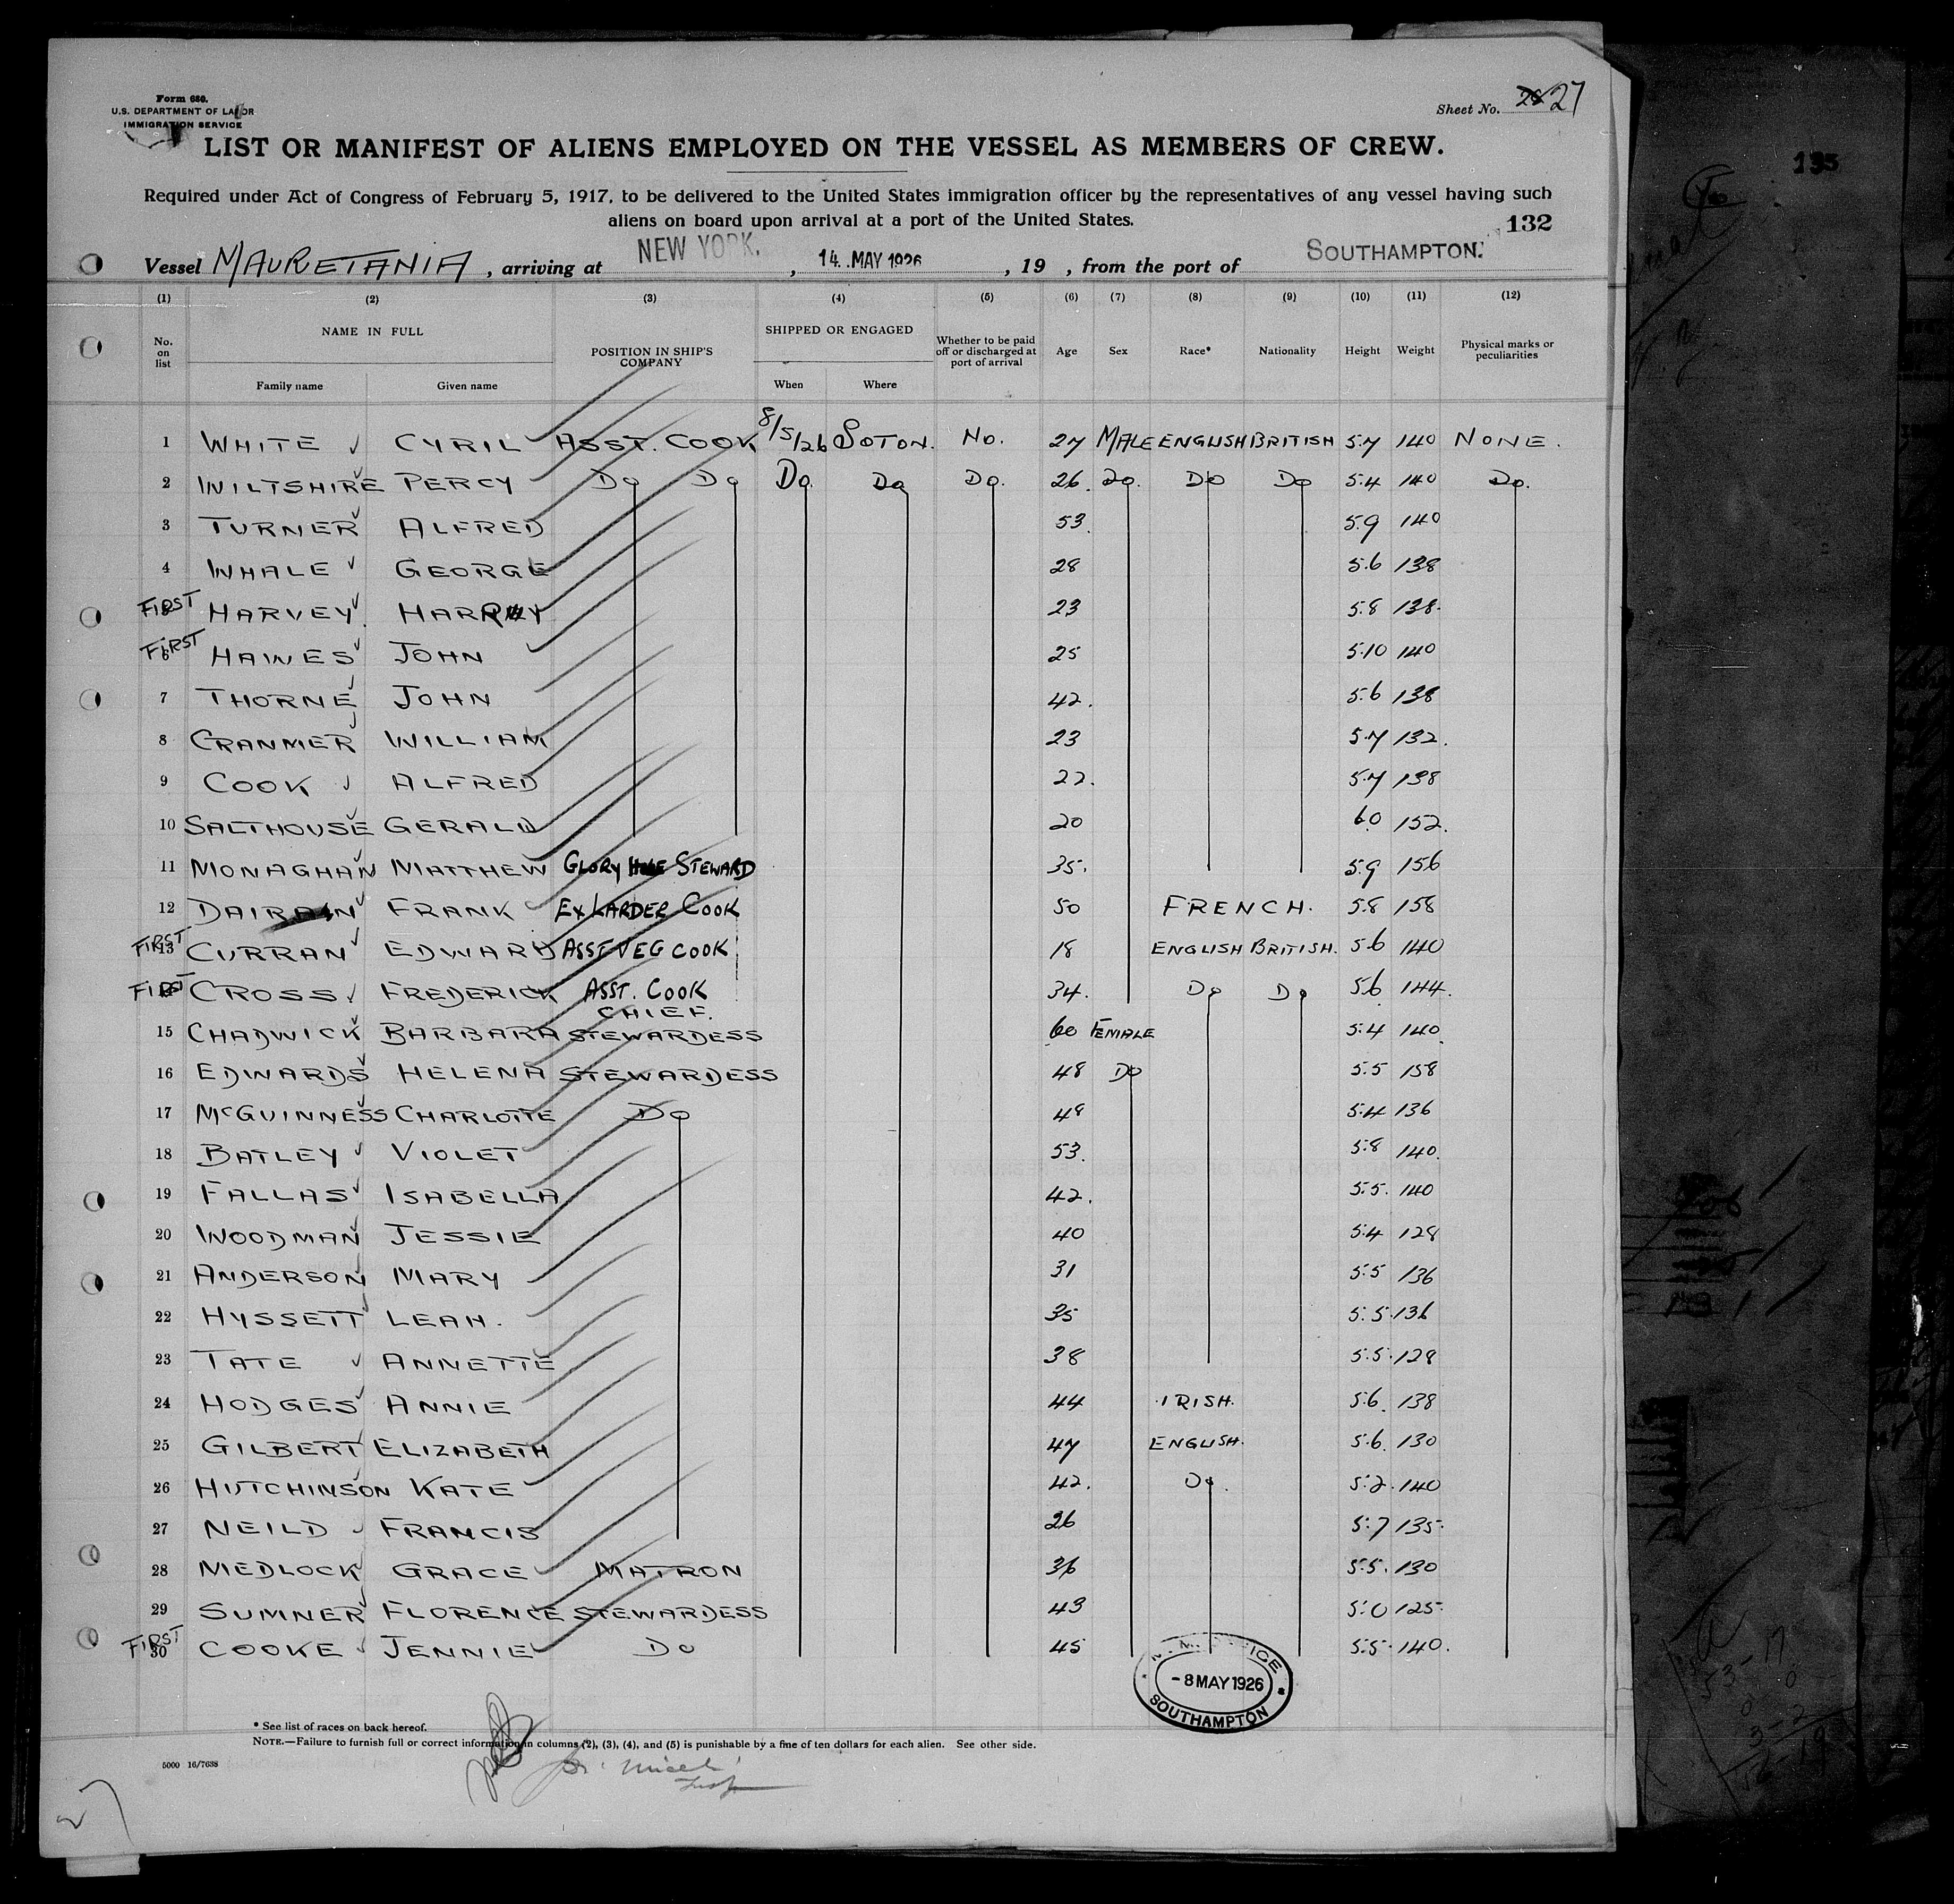 Form 680.
U.S. DEPARTMENT OF LABOR
IMMIGRATION SERVICE
Sheet No. 27
LIST OR MANIFEST OF ALIENS EMPLOYED ON THE VESSEL AS MEMBERS OF CREW.
Required under Act of Congress of February 5, 1917, to be delivered to the United States immigration officer by the representatives of any vessel having such
aliens on board upon arrival at a port of the United States.
132
Vessel MAURETANIA, arriving at NEW YORK, 14 MAY 1926, 19 , from the port of SOUTHAMPTON.
(1) (2) (3) (4) (5) (6) (7) (8) (9) (10) (11) (12)
No. on list NAME IN FULL Family name Given name POSITION IN SHIP'S COMPANY SHIPPED OR ENGAGED When Where Whether to be paid off or discharged at port of arrival Age Sex Race* Nationality Height Weight Physical marks or peculiarities
1 WHITE CYRIL ASST. COOK 8/5/26 SOTON. No. 27 MALE ENGLISH BRITISH 5.7 140 NONE.
2 WILTSHIRE PERCY Do Do Do. Do Do. 26 Do. Do Do 5.4 140 Do.
3 TURNER ALFRED 53 5.9 140
4 WHALE GEORGE 28 5.6 138
FIRST HARVEY HARRY 23 5.8 138
FIRST 6 HAWES JOHN 25 5.10 140
7 THORNE JOHN 42. 5.6 138
8 CRANMER WILLIAM 23 5.7 132.
9 COOK ALFRED 22. 5.7 138
10 SALTHOUSE GERALD 20 6.0 152.
11 MONAGHAN MATTHEW GLORY HOLE STEWARD 35. 5.9 156
12 DAIRAIN FRANK EX LARDER COOK 50 FRENCH. 5.8 158
FIRST 13 CURRAN EDWARD ASST VEG COOK 18 ENGLISH BRITISH. 5.6 140
FIRST CROSS FREDERICK ASST. COOK 34. Do Do 5.6 144.
15 CHADWICK BARBARA CHIEF. STEWARDESS 60 FEMALE 5.4 140
16 EDWARDS HELENA STEWARDESS 48 Do 5.5 158
17 McGUINNESS CHARLOTTE Do 49 5.4 136
18 BATLEY VIOLET 53. 5.8 140.
19 FALLAS ISABELLA 42. 5.5. 140
20 WOODMAN JESSIE 40 5.4 128
21 ANDERSON MARY 31 5.5 136
22 HYSSETT LEAH. 35 5.5. 136
23 TATE ANNETTE 38 5.5. 128
24 HODGES ANNIE 44 IRISH. 5.6. 138
25 GILBERT ELIZABETH 47 ENGLISH. 5.6. 130
26 HUTCHINSON KATE 42. Do. 5.2. 140
27 NEILD FRANCIS 26 5.7 135.
28 MEDLOCK GRACE MATRON 36 5.5. 130
29 SUMNER FLORENCE STEWARDESS 43 5.0 125.
FIRST 30 COOKE JENNIE Do 45 5.5. 140.
- 8 MAY 1926
SOUTHAMPTON
* See list of races on back hereof.
NOTE.—Failure to furnish full or correct information in columns (2), (3), (4), and (5) is punishable by a fine of ten dollars for each alien. See other side.
5000 16/7638
27